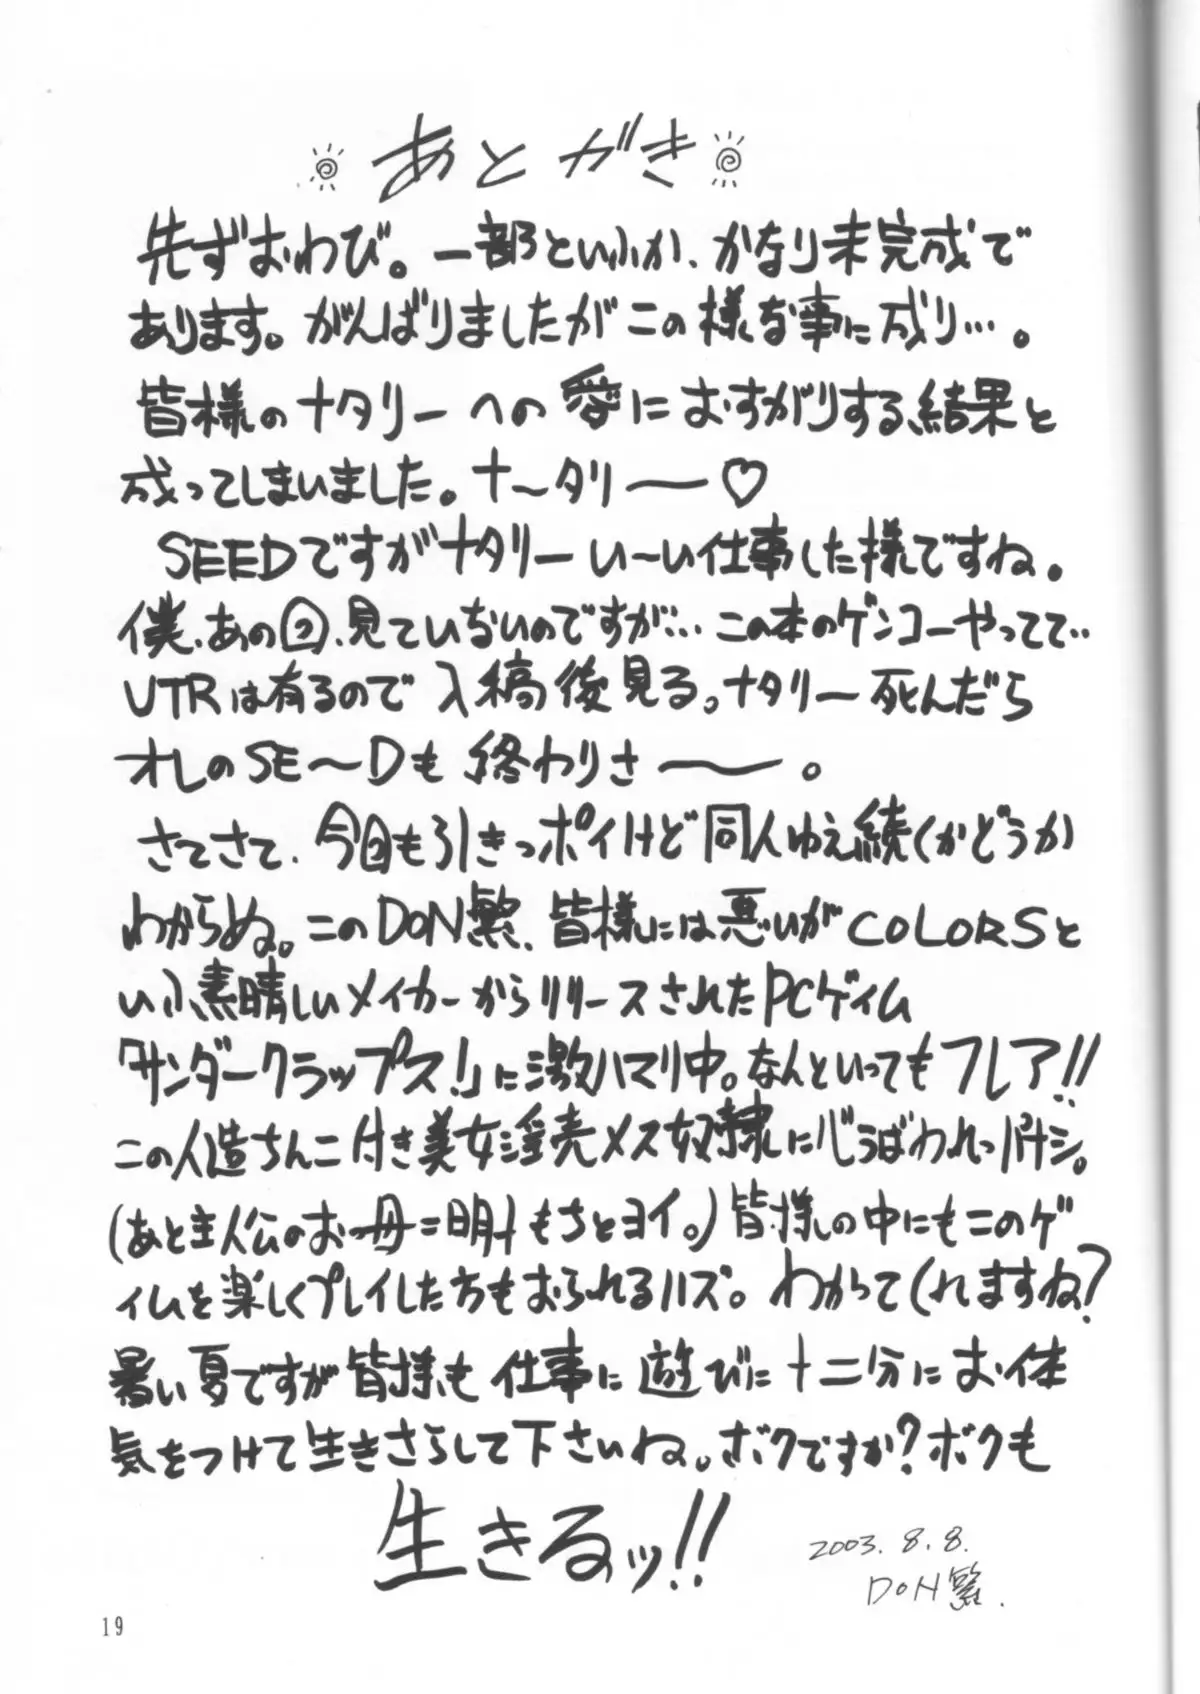 あとがき
先ずおわび。一部といふか、かなり未完成で
あります。がんばりましたがこの様な事に成り…。
皆様のナタリーへの愛におすがりする結果と
成ってしまいました。ナ〜タリー♡
SEEDですがナタリーい〜い仕事した様ですね。
僕、あの回、見ていないのですが…この本のゲンコーやってて‥
VTRは有るので入稿後見る。ナタリー死んだら
オレのSE〜Dも終わりさ――。
さてさて、今回も引きっポイけど同人ゆえ続くかどうか
わからぬ。このDON繁、皆様には悪いがCOLORSと
いふ素晴しいメイカーからリリースされたPCゲイム
「サンダークラップス!」に激ハマリ中。なんといってもフレア!!
この人造ちんこ付き美女淫売メス奴隷に心うばわれっパナシ。
(あと主人公のお母=明もちとヨイ。)皆様の中にもこのゲ
ィムを楽しくプレイした方もおられるハズ。わかってくれますね?
暑い夏ですが皆様も仕事に遊びに十二分にお体
気をつけて生きさらして下さいね。ボクですか?ボクも
生きるッ!!
2003.8.8.
DON繁.
19